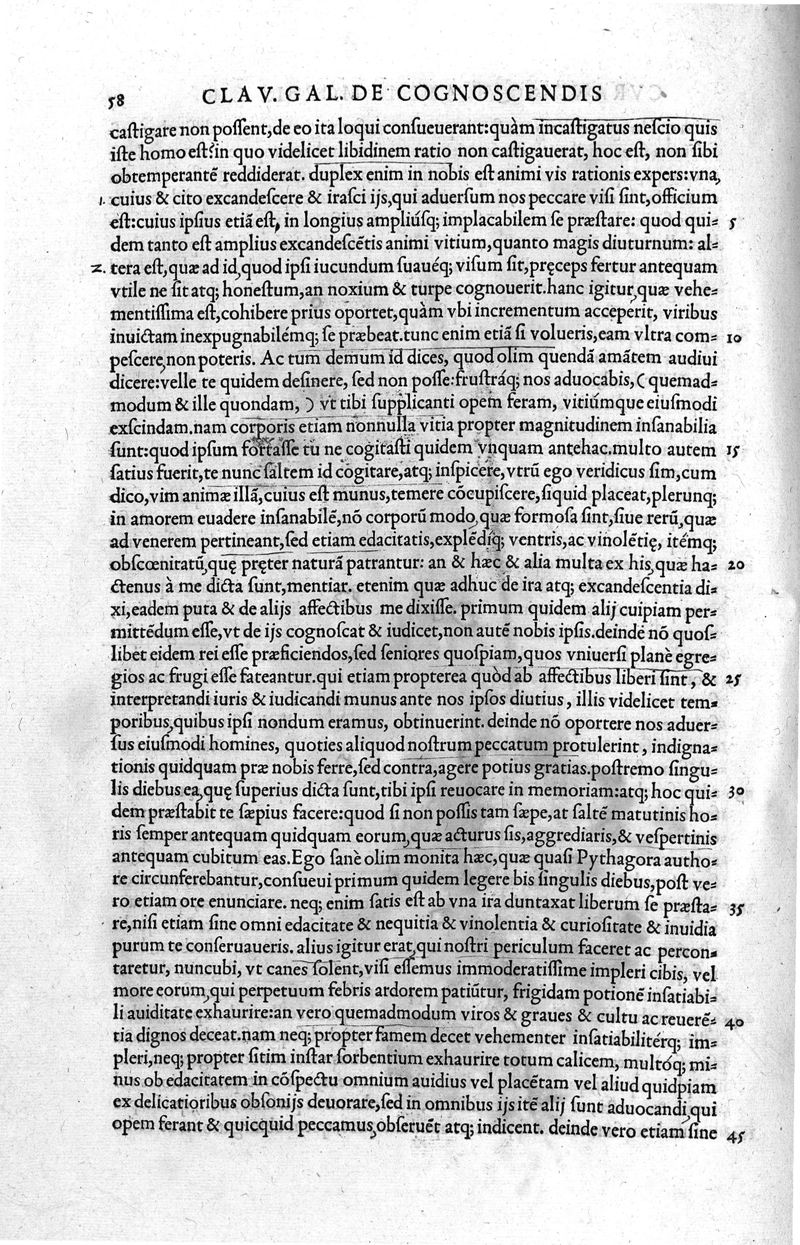 58 CLAV. GAL. DE COGNOSCENDIS
caſtigare non poſſent,de eo ita loqui conſueuerant:quàm incaſtigatus neſcio quis
iſte homo eſt?in quo videlicet libidinem ratio non caſtigauerat, hoc eſt, non ſibi
obtemperantē reddiderat. duplex enim in nobis eſt animi vis rationis expers:vna,
1. cuius & cito excandeſcere & iraſci ijs,qui aduerſum nos peccare viſi ſint,officium
eſt:cuius ipſius etiā eſt, in longius ampliúſq; implacabilem ſe præſtare: quod qui- 5
dem tanto eſt amplius excandeſcētis animi vitium,quanto magis diuturnum: al-
2. tera eſt,quæ ad id,quod ipſi iucundum ſuauéq; viſum ſit,pręceps fertur antequam
vtile ne ſit atq; honeſtum,an noxium & turpe cognouerit.hanc igitur,quæ vehe-
mentiſſima eſt,cohibere prius oportet,quàm vbi incrementum acceperit, viribus
inuictam inexpugnabilémq; ſe præbeat.tunc enim etiā ſi volueris,eam vltra com- 10
peſcere,non poteris. Ac tum demum id dices, quod olim quendā amātem audiui
dicere:velle te quidem deſinere, ſed non poſſe:fruſtráq; nos aduocabis, ( quemad-
modum & ille quondam, ) vt tibi ſupplicanti opem feram, vitiúmque eiuſmodi
exſcindam.nam corporis etiam nonnulla vitia propter magnitudinem inſanabilia
ſunt:quod ipſum fortaſſe tu ne cogitaſti quidem vnquam antehac.multo autem 15
ſatius fuerit,te nunc ſaltem id cogitare,atq; inſpicere,vtrū ego veridicus ſim,cum
dico,vim animæ illā,cuius eſt munus,temere cōcupiſcere,ſiquid placeat,plerunq;
in amorem euadere inſanabilē,nō corporū modo,quæ formoſa ſint,ſiue rerū,quæ
ad venerem pertineant,ſed etiam edacitatis,explēdíq; ventris,ac vinolētię, itémq;
obſcœnitatū,quę pręter naturā patrantur: an & hæc & alia multa ex his,quæ ha- 20
ctenus à me dicta ſunt,mentiar. etenim quæ adhuc de ira atq; excandeſcentia di-
xi,eadem puta & de alijs affectibus me dixiſſe. primum quidem alij cuipiam per-
mittēdum eſſe,vt de ijs cognoſcat & iudicet,non autē nobis ipſis.deinde nō quoſ-
libet eidem rei eſſe præficiendos,ſed ſeniores quoſpiam,quos vniuerſi planè egre-
gios ac frugi eſſe fateantur.qui etiam propterea quòd ab affectibus liberi ſint, & 25
interpretandi iuris & iudicandi munus ante nos ipſos diutius, illis videlicet tem-
poribus,quibus ipſi nondum eramus, obtinuerint. deinde nō oportere nos aduer-
ſus eiuſmodi homines, quoties aliquod noſtrum peccatum protulerint, indigna-
tionis quidquam præ nobis ferre,ſed contra,agere potius gratias.poſtremo ſingu-
lis diebus ea,quę ſuperius dicta ſunt,tibi ipſi reuocare in memoriam:atq; hoc qui- 30
dem præſtabit te ſæpius facere:quod ſi non poſſis tam ſæpe,at ſaltē matutinis ho-
ris ſemper antequam quidquam eorum,quæ acturus ſis,aggrediaris,& veſpertinis
antequam cubitum eas.Ego ſanè olim monita hæc,quæ quaſi Pythagora autho-
re circunferebantur,conſueui primum quidem legere bis ſingulis diebus,poſt ve-
ro etiam ore enunciare. neq; enim ſatis eſt ab vna ira duntaxat liberum ſe præſta- 35
re,niſi etiam ſine omni edacitate & nequitia & vinolentia & curioſitate & inuidia
purum te conſeruaueris. alius igitur erat,qui noſtri periculum faceret ac percon-
taretur, nuncubi, vt canes ſolent,viſi eſſemus immoderatiſſime impleri cibis, vel
more eorum,qui perpetuum febris ardorem patiūtur, frigidam potionē inſatiabi-
li auiditate exhaurire:an vero quemadmodum viros & graues & cultu ac reuerē- 40
tia dignos deceat.nam neq; propter famem decet vehementer inſatiabilitérq; im-
pleri,neq; propter ſitim inſtar ſorbentium exhaurire totum calicem, multóq; mi-
nus ob edacitatem in cōſpectu omnium auidius vel placētam vel aliud quidpiam
ex delicatioribus obſonijs deuorare,ſed in omnibus ijs itē alij ſunt aduocandi,qui
opem ferant & quicquid peccamus,obſeruēt atq; indicent. deinde vero etiam ſine 45